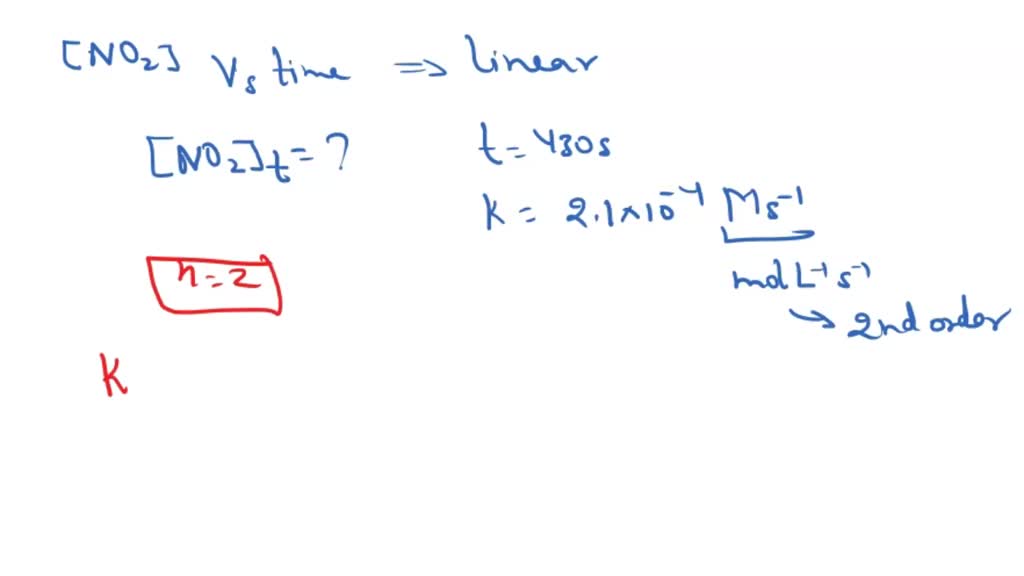 [NO₂] Vs time ⇒ linear
[NO₂]t = ? t = 430s
K = 2.1×10⁻⁴ Ms⁻¹
mol L⁻¹ s⁻¹
n=2 → 2nd order
K